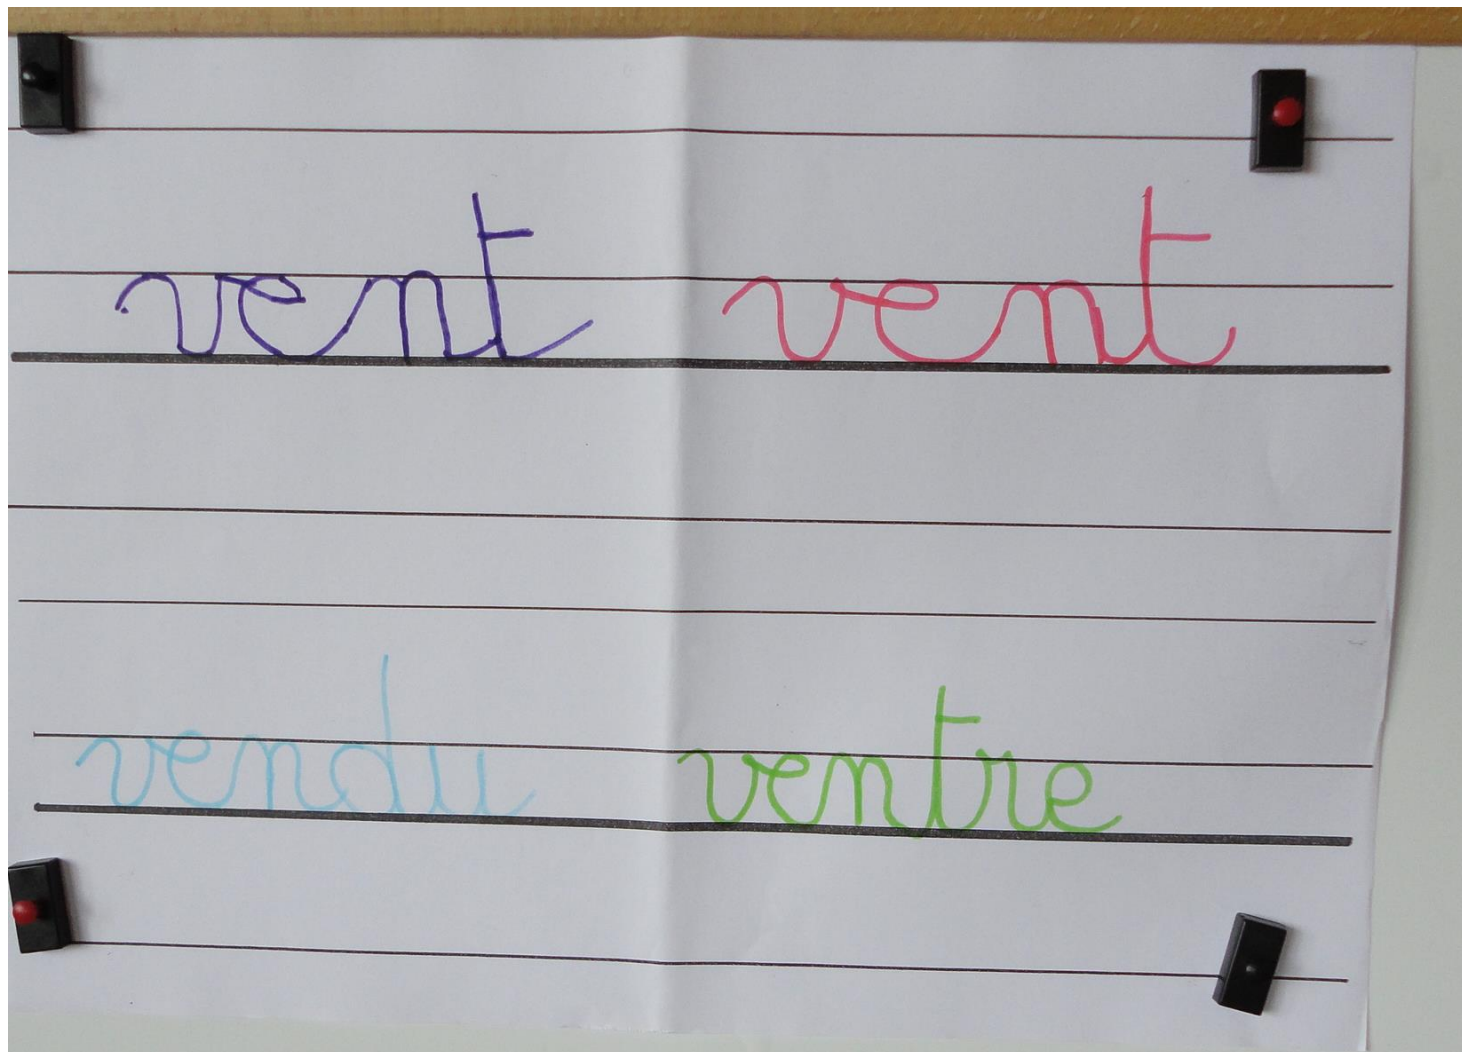 vent vent
vendu ventre